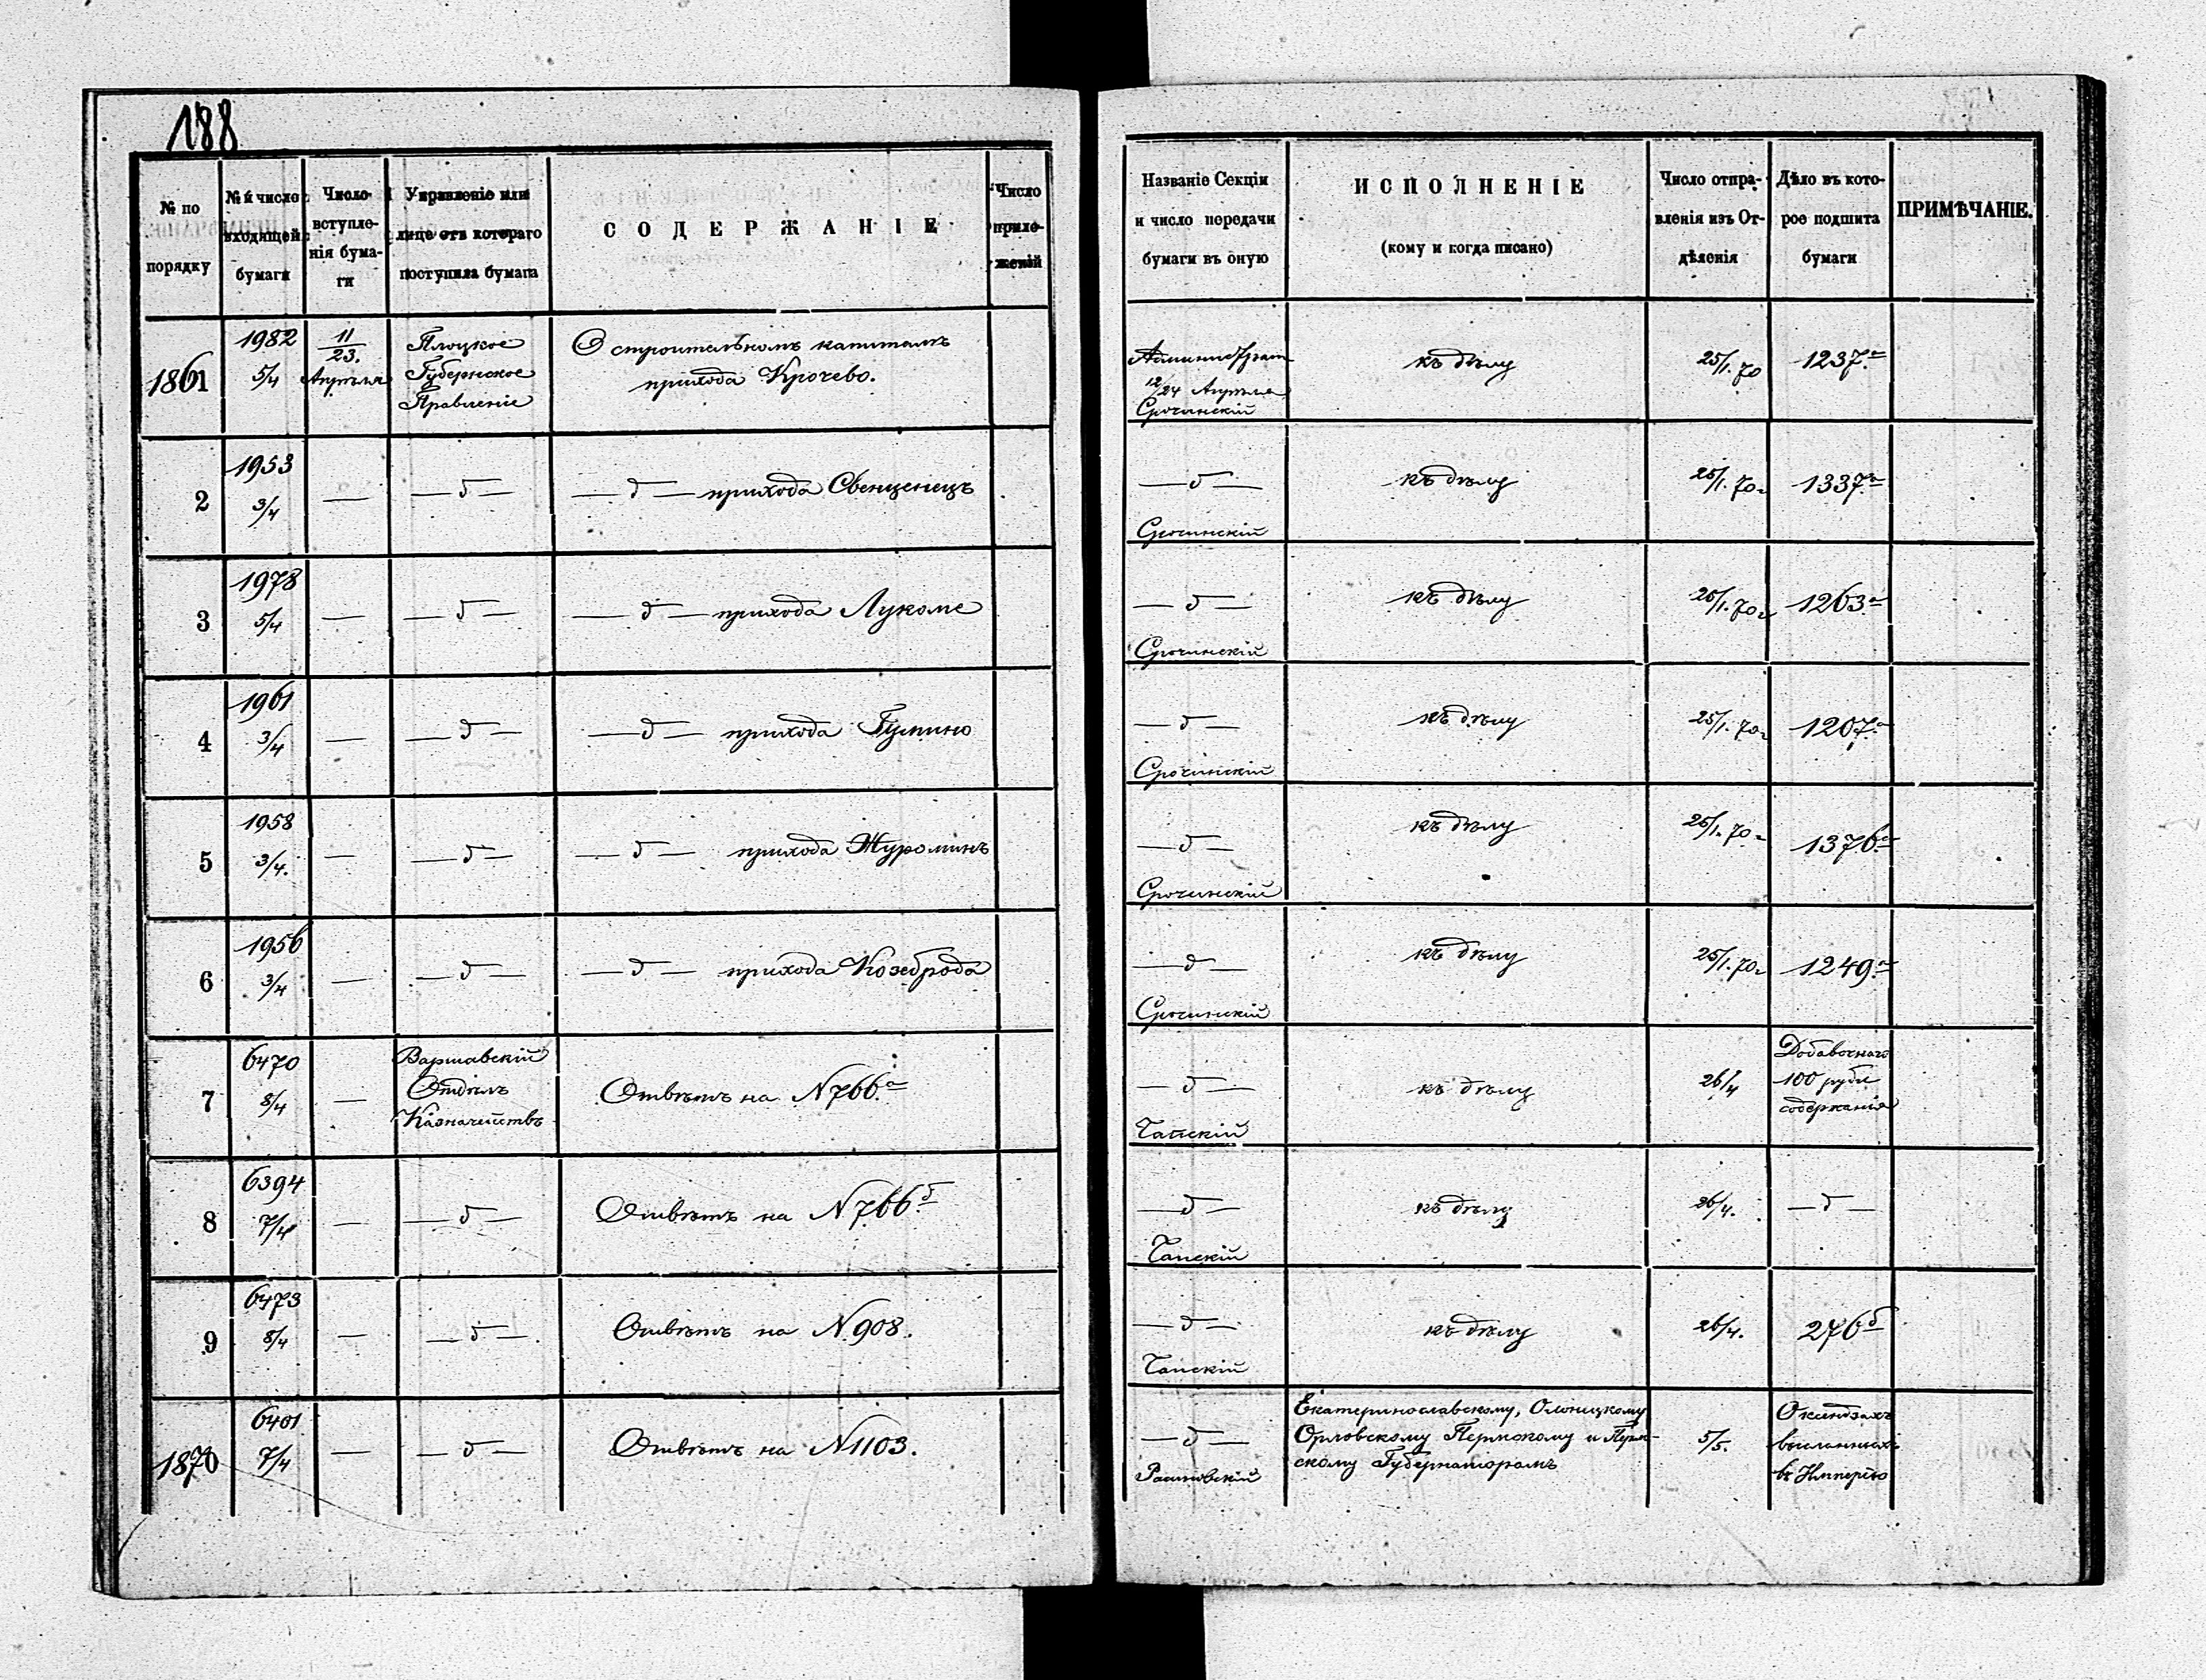 188
№ по порядку
№ и число входящей бумаги
Число вступленія бумаги
Управленіе или лице отъ котораго поступила бумага
СОДЕРЖАНІЕ
Число приложеній
Названіе Секціи и число передачи бумаги въ оную
ИСПОЛНЕНІЕ
(кому и когда писано)
Число отправленія изъ Отдѣленія
Дѣло въ которое подшита бумаги
ПРИМѢЧАНІЕ.
1861 1982 5/4 11/23. Апрѣля Плоцкое Губернское Правленіе О строительномъ капиталѣ прихода Крочево. Администрат 12/24 Апрѣля Срочинскій къ дѣлу 25/1. 70 1237.а
2 1953 3/4 — — д — — д — прихода Свенценецъ — д — Срочинскій къ дѣлу 25/1. 70г 1337а
3 1978 5/4 — — д — — д — прихода Лукоме — д — Срочинскій къ дѣлу 25/1. 70г 1263а
4 1961 3/4 — — д — — д — прихода Гумино — д — Срочинскій къ дѣлу 25/1. 70г 1207.а
5 1958 3/4. — — д — — д — прихода Журоминъ — д — Срочинскій къ дѣлу 25/1. 70г 1376.а
6 1956 3/4 — — д — — д — прихода Козеброда — д — Срочинскій къ дѣлу 25/1. 70г 1249.а
7 6470 8/4 — Варшавскій Отдѣлъ Казначействъ Отвѣтъ на N 766.а — д — Чапскій къ дѣлу 26/4 Добавочнаго 100 рубл содержанія
8 6394 7/4 — — д — Отвѣтъ на N 766.б — д — Чапскій къ дѣлу 26/4. — д —
9 6473 8/4 — — д — Отвѣтъ на N 908. — д — Чапскій къ дѣлу 26/4. 276б
1870 6401 7/4 — — д — Отвѣтъ на N 1103. — д — Екатеринославскому, Олонецкому Орловскому Пермскому и Губернаторамъ 5/5. О ксендзахъ высланныхъ въ Имперію